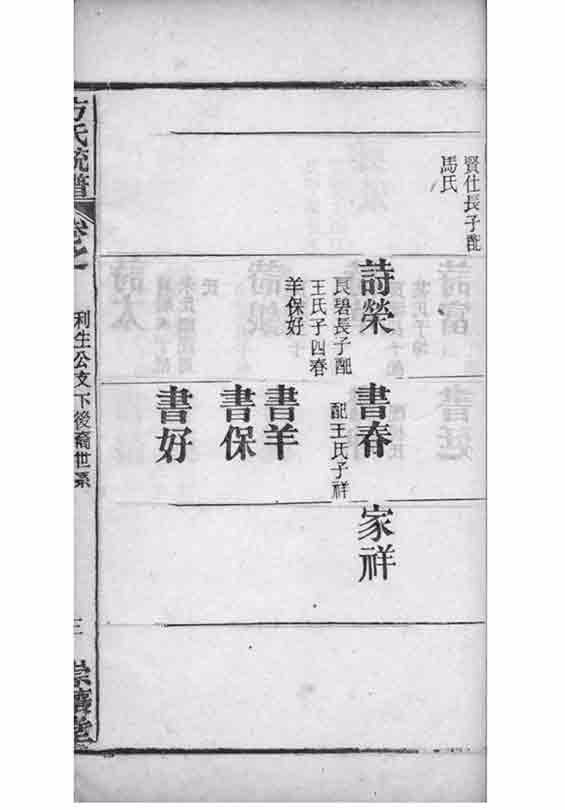 賢仕長子配
馬氏
詩榮
良碧長子配
王氏子四春
羊保好
書春
配王氏子祥
書羊
書保
書好
家祥
方氏統譜
卷之
利生公支下後裔世系
三
崇禧堂